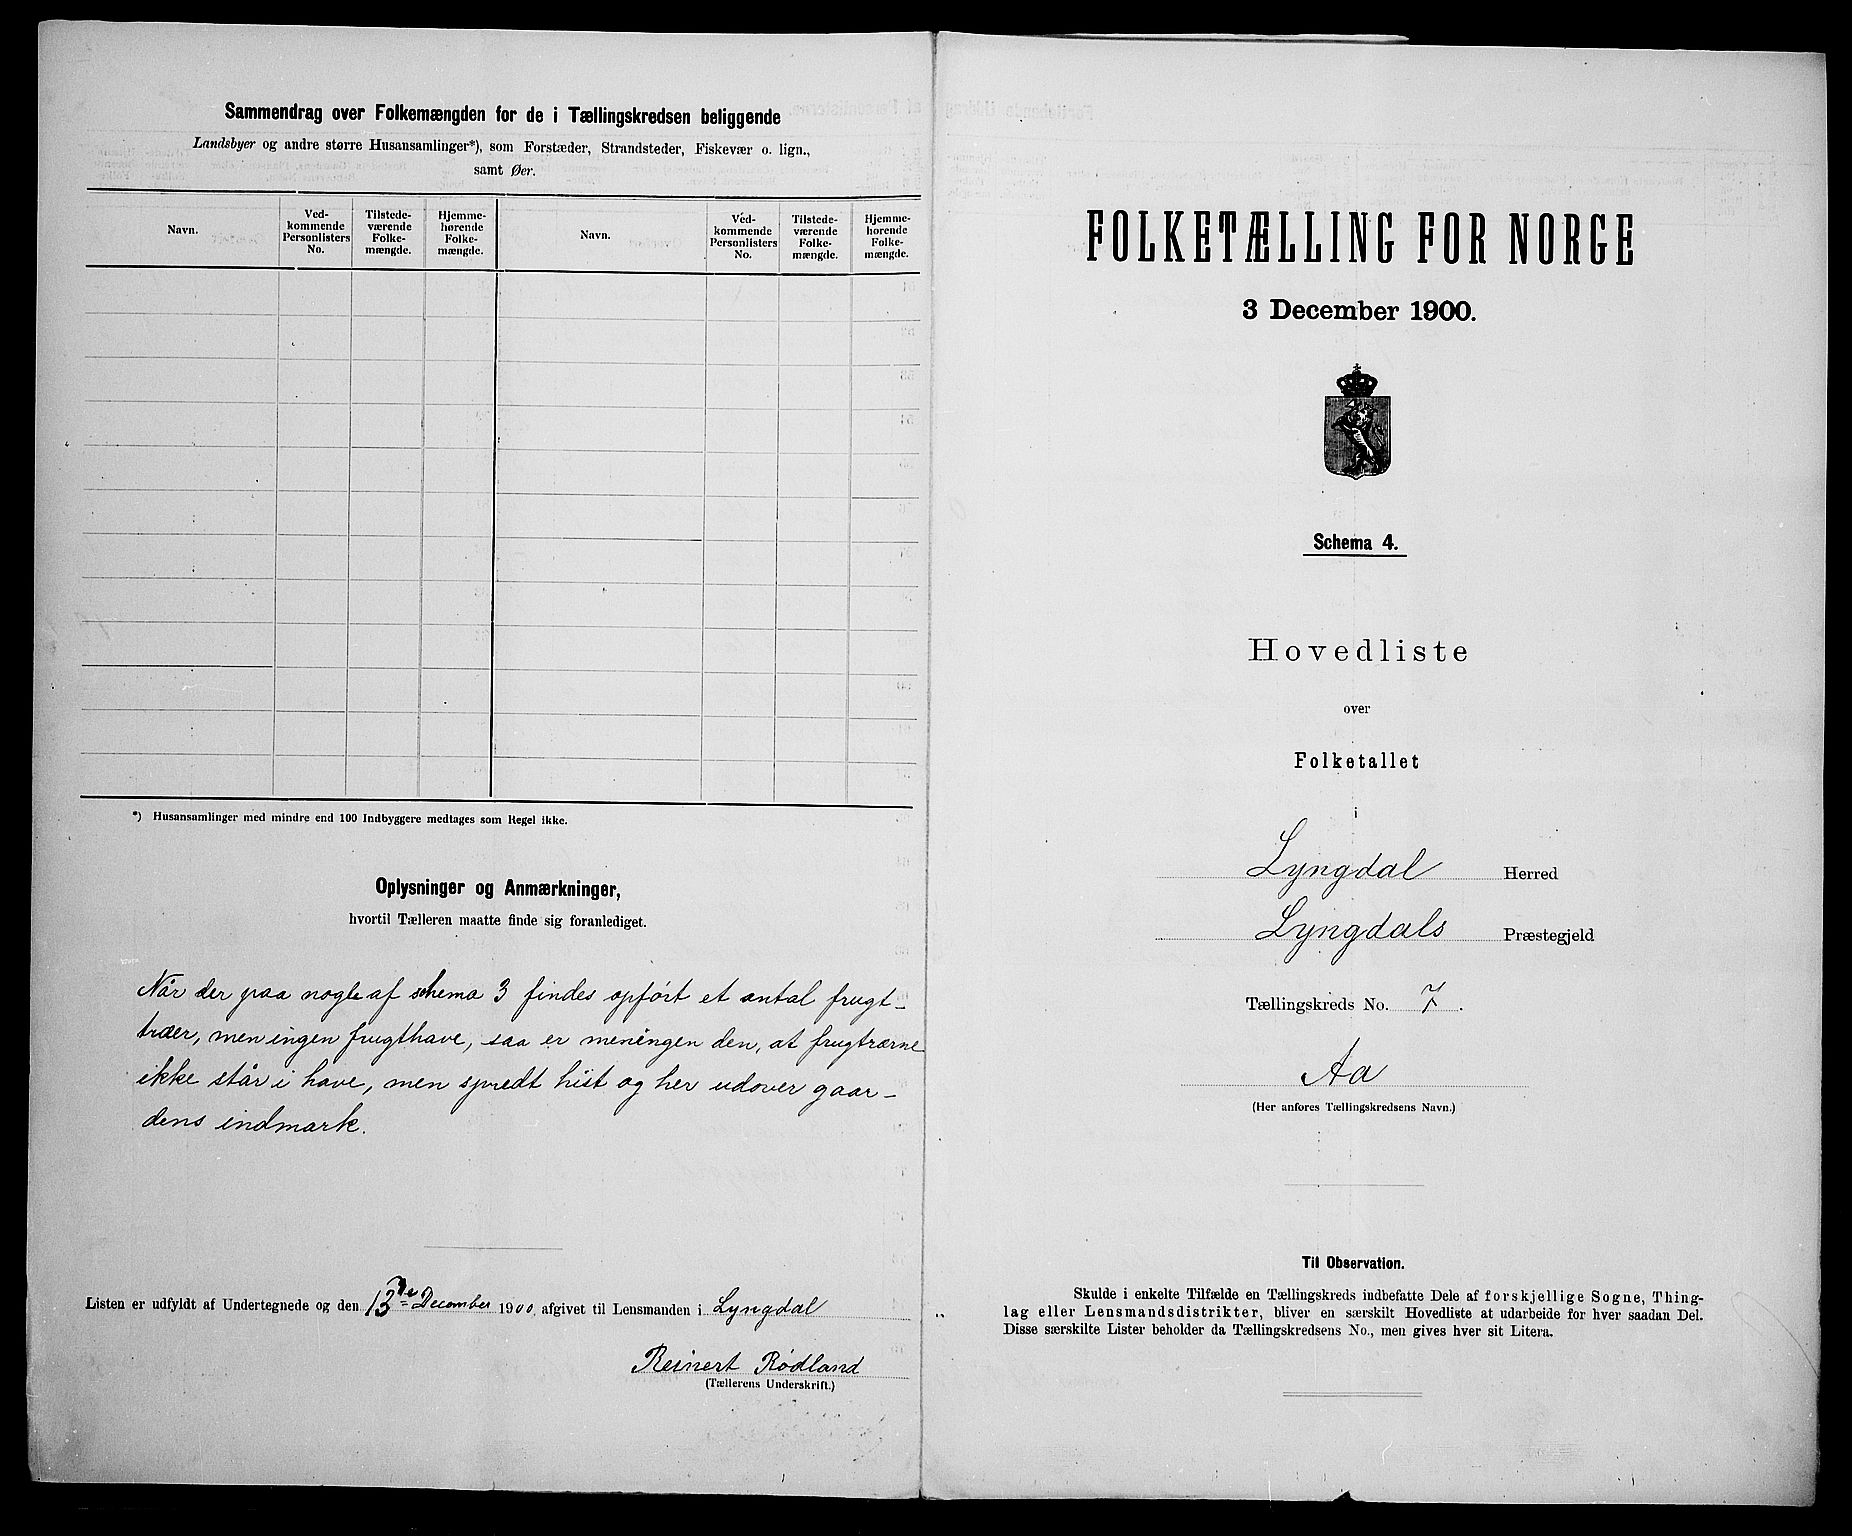 Sammendrag over Folkemængden for de i Tællingskredsen beliggende
Landsbyer og andre større Husansamlinger*), som Forstæder, Strandsteder, Fiskevær o. lign.,
samt Øer.
Navn.
Ved-
kommende
Personlisters
No.
Tilstede-
værende
Folke-
mængde.
Hjemme-
hørende
Folke-
mængde.
Navn.
Ved-
kommende
Personlisters
No.
Tilstede-
værende
Folke-
mængde.
Hjemme-
hørende
Folke-
mængde.
*) Husansamlinger med mindre end 100 Indbyggere medtages som Regel ikke.
Oplysninger og Anmærkninger,
hvortil Tælleren maatte finde sig foranlediget.
Når der paa nogle af schema 3 findes opført et antal frugt-
træer, men ingen frugthave, saa er meningen den, at frugtrærne
ikke står i have, men spredt hist og her udover gaar-
dens indmark.
Listen er udfyldt af Undertegnede og den 13de December 1900 afgivet til Lensmanden i Lyngdal
Reinert Rødland
(Tællerens Underskrift.)
FOLKETÆLLING FOR NORGE
3 December 1900.
Schema 4.
Hovedliste
over
Folketallet
i
Lyngdal Herred
Lyngdals Præstegjeld
Tællingskreds No. 7.
Aa
(Her anføres Tællingskredsens Navn.)
Til Observation.
Skulde i enkelte Tilfælde en Tællingskreds indbefatte Dele af forskjellige Sogne, Thing-
lag eller Lensmandsdistrikter, bliver en særskilt Hovedliste at udarbeide for hver saadan Del.
Disse særskilte Lister beholder da Tællingskredsens No., men gives hver sit Litera.